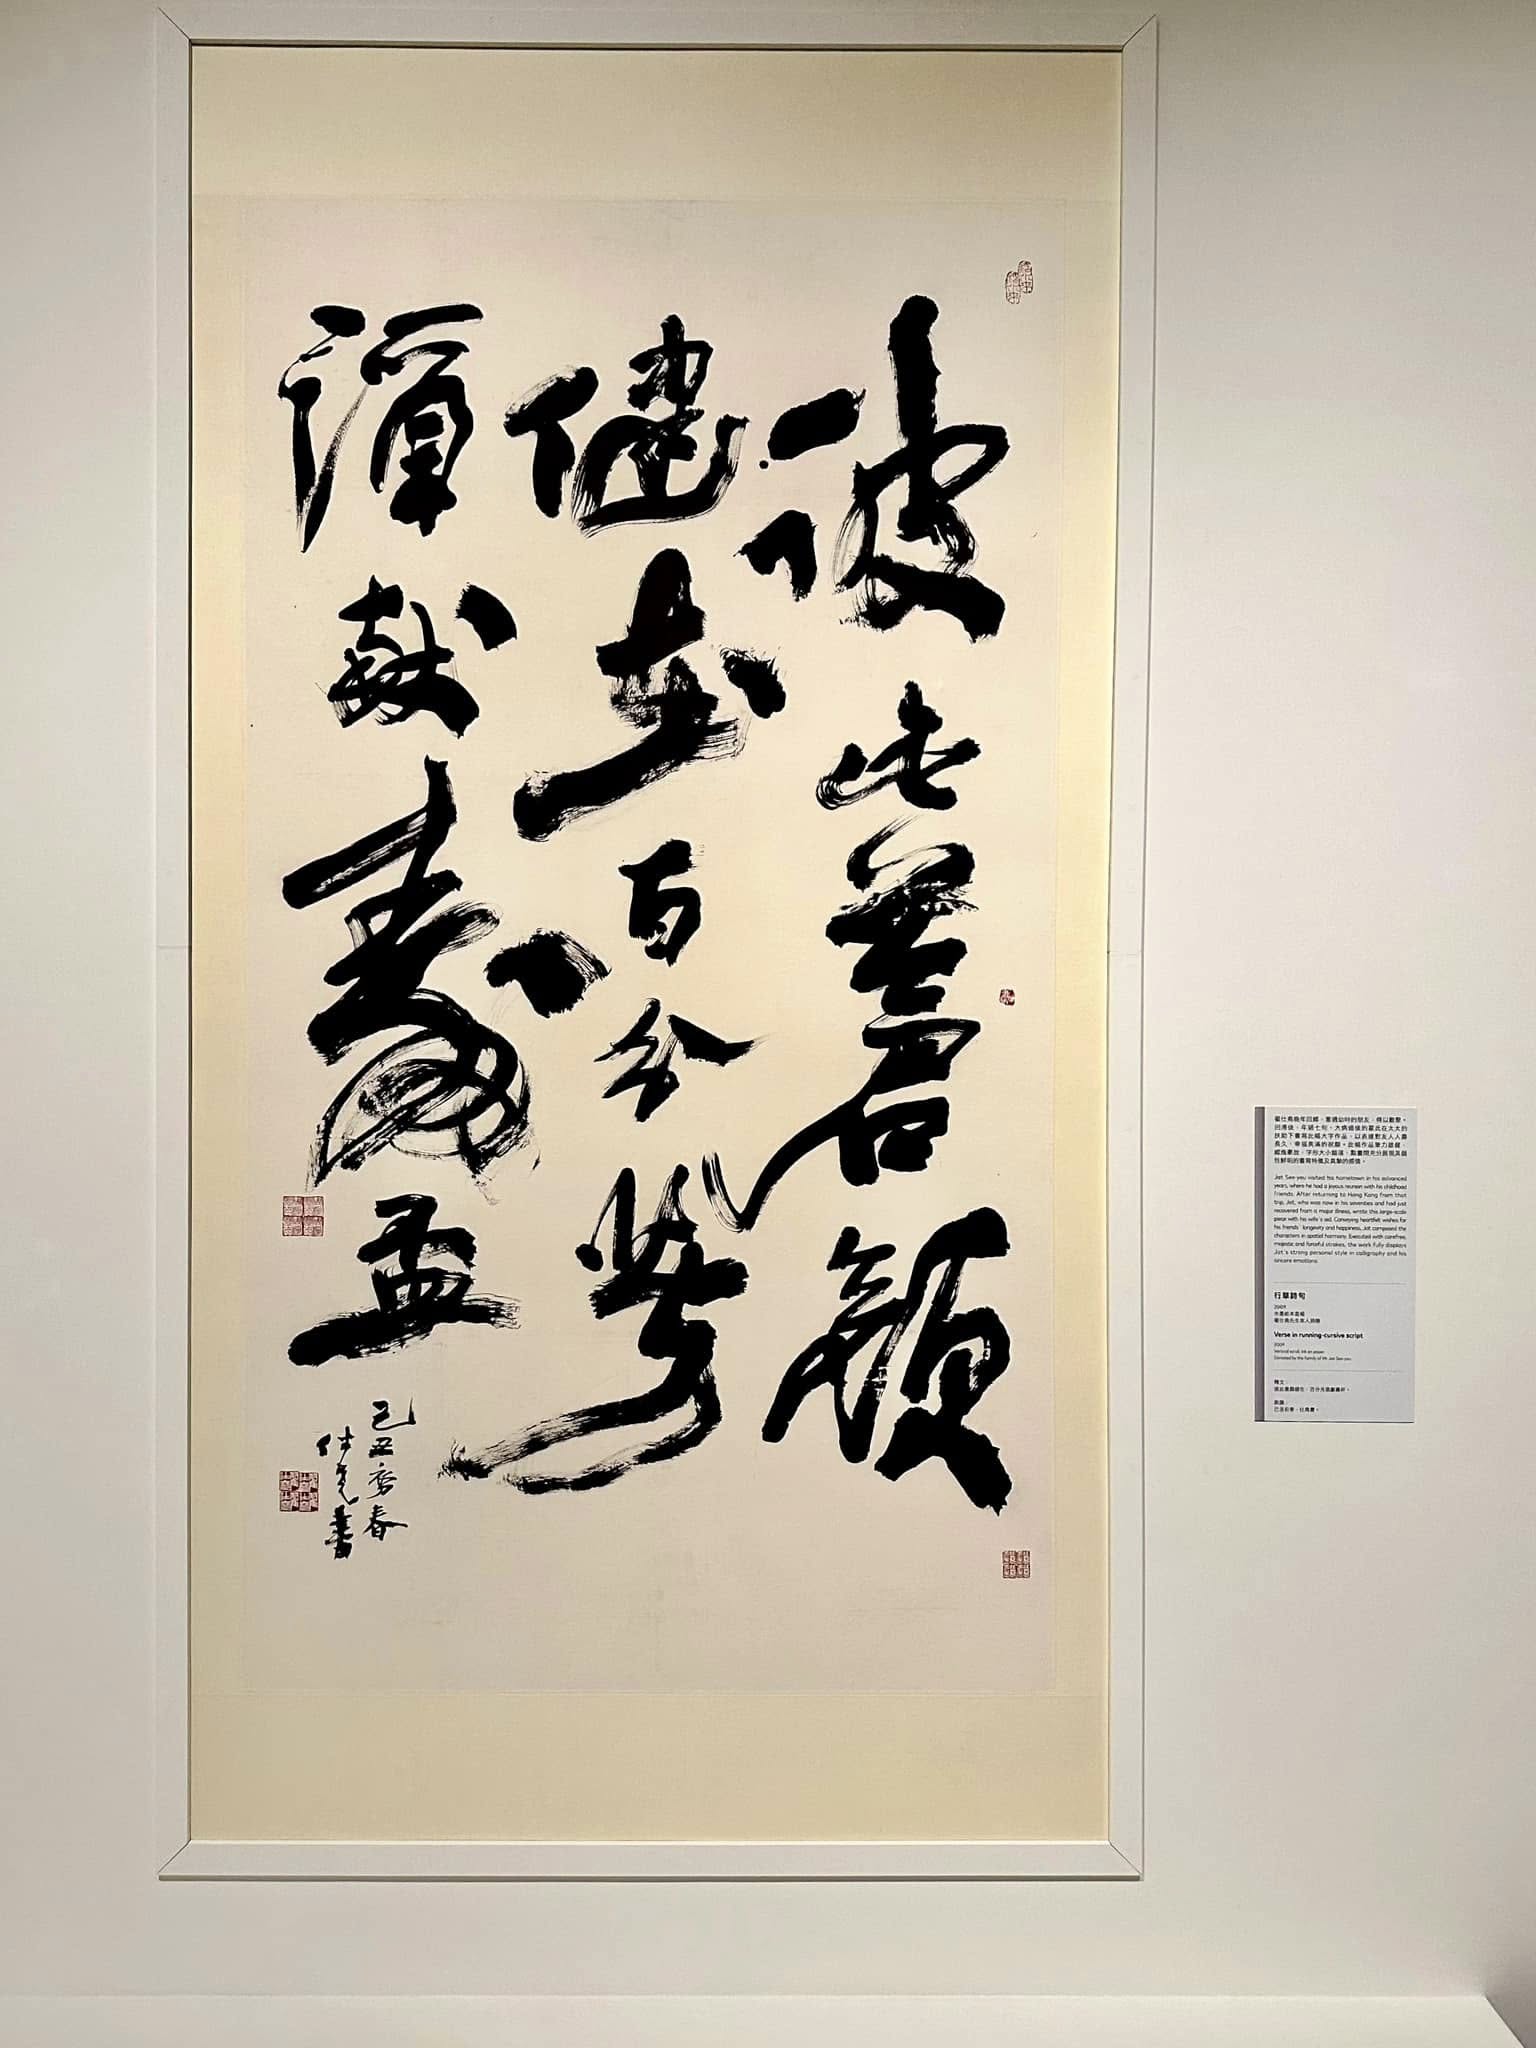 彼此蒼顏
健在百分
獻壽盃
己丑春
仕堯書
翟仕堯晚年回鄉，重遇幼時的朋友，得以歡聚。
回港後，年過七旬、大病癒後的翟氏在太太的
扶助下書寫此幅大字作品，以表達對友人人壽
長久、幸福美滿的祝願。此幅作品筆力雄健，
縱逸豪放，字形大小錯落，點畫間充分展現其個
性鮮明的書寫特徵及真摯的感情。
Jat See-yeu visited his hometown in his advanced
years, where he had a joyous reunion with his childhood
friends. After returning to Hong Kong from that
trip, Jat, who was now in his seventies and had just
recovered from a major illness, wrote this large-scale
piece with his wife's aid. Conveying heartfelt wishes for
his friends' longevity and happiness, Jat composed the
characters in spatial harmony. Executed with carefree,
majestic and forceful strokes, the work fully displays
Jat's strong personal style in calligraphy and his
sincere emotions.
行草詩句
2009
水墨紙本直幅
翟仕堯先生家人捐贈
Verse in running-cursive script
2009
Vertical scroll, ink on paper
Donated by the family of Mr Jat See-yeu
釋文：
款識：